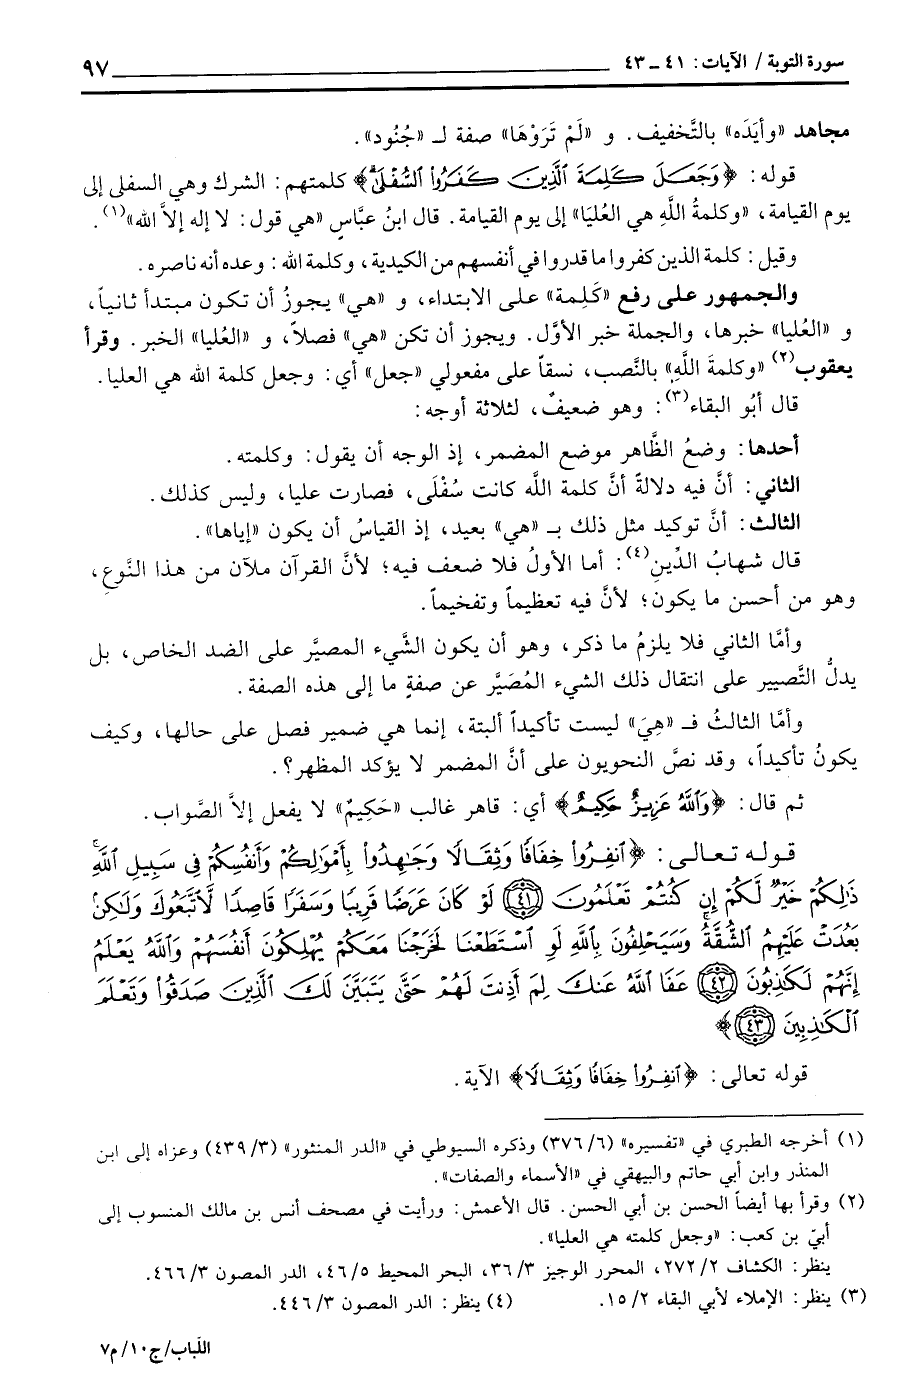 سورة التوبة / الآيات : ٤١ ـ ٤٣ ٩٧
مجاهد «وأيَدَه» بالتَّخفيف. و «لَمْ تَرَوْهَا» صفة لـ «جُنُود».
قوله: ﴿وَجَعَلَ كَلِمَةَ ٱلَّذِينَ كَفَرُواْ ٱلسُّفْلَىٰۗ﴾ كلمتهم: الشرك وهي السفلى إلى
يوم القيامة، «وكلمةُ اللَّهِ هي العُليَا» إلى يوم القيامة. قال ابنُ عبَّاسٍ «هي قول: لا إله إلاَّ الله»(١).
وقيل: كلمة الذين كفروا ما قدروا في أنفسهم من الكيدية، وكلمة الله: وعده أنه ناصره.
والجمهور على رفع «كَلِمة» على الابتداء، و «هي» يجوزُ أن تكون مبتدأ ثانياً،
و «العُليا» خبرها، والجملة خبر الأوَّل. ويجوز أن تكن «هي» فصلاً، و «العُليا» الخبر. وقرأ
يعقوب(٢) «وكلمةَ اللَّهِ» بالنَّصب، نسقاً على مفعولي «جعل» أي: وجعل كلمة الله هي العليا.
قال أبُو البقاء(٣): وهو ضعيفٌ، لثلاثة أوجه:
أحدها: وضعُ الظَّاهر موضع المضمر، إذ الوجه أن يقول: وكلمته.
الثاني: أنَّ فيه دلالةً أنَّ كلمة اللَّه كانت سُفْلَى، فصارت عليا، وليس كذلك.
الثالث: أنَّ توكيد مثل ذلك بـ «هي» بعيد، إذ القياسُ أن يكون «إياها».
قال شهابُ الدِّينِ(٤): أما الأولُ فلا ضعف فيه؛ لأنَّ القرآن ملآن من هذا النَّوعِ،
وهو من أحسن ما يكون؛ لأنَّ فيه تعظيماً وتفخيماً.
وأمَّا الثاني فلا يلزمُ ما ذكر، وهو أن يكون الشَّيء المصيَّر على الضد الخاص، بل
يدلُّ التَّصيير على انتقال ذلك الشيء المُصَيَّر عن صفةٍ ما إلى هذه الصفة.
وأمَّا الثالثُ فـ «هِيَ» ليست تأكيداً ألبتة، إنما هي ضمير فصل على حالها، وكيف
يكونُ تأكيداً، وقد نصَّ النحويون على أنَّ المضمر لا يؤكد المظهر؟.
ثم قال: ﴿وَٱللَّهُ عَزِيزٌ حَكِيمٌ﴾ أي: قاهر غالب «حَكِيمٌ» لا يفعل إلاَّ الصَّواب.
قوله تعالى: ﴿ٱنفِرُواْ خِفَافًا وَثِقَالًا وَجَٰهِدُواْ بِأَمْوَٰلِكُمْ وَأَنفُسِكُمْ فِي سَبِيلِ ٱللَّهِۚ
ذَٰلِكُمْ خَيْرٌ لَّكُمْ إِن كُنتُمْ تَعْلَمُونَ ﴿٤١﴾ لَوْ كَانَ عَرَضًا قَرِيبًا وَسَفَرًا قَاصِدًا لَّٱتَّبَعُوكَ وَلَٰكِنۢ
بَعُدَتْ عَلَيْهِمُ ٱلشُّقَّةُۚ وَسَيَحْلِفُونَ بِٱللَّهِ لَوِ ٱسْتَطَعْنَا لَخَرَجْنَا مَعَكُمْ يُهْلِكُونَ أَنفُسَهُمْ وَٱللَّهُ يَعْلَمُ
إِنَّهُمْ لَكَٰذِبُونَ ﴿٤٢﴾ عَفَا ٱللَّهُ عَنكَ لِمَ أَذِنتَ لَهُمْ حَتَّىٰ يَتَبَيَّنَ لَكَ ٱلَّذِينَ صَدَقُواْ وَتَعْلَمَ
ٱلْكَٰذِبِينَ ﴿٤٣﴾﴾
قوله تعالى: ﴿ٱنفِرُواْ خِفَافًا وَثِقَالًا﴾ الآية.
(١) أخرجه الطبري في «تفسيره» (٣٧٦/٦) وذكره السيوطي في «الدر المنثور» (٤٣٩/٣) وعزاه إلى ابن
المنذر وابن أبي حاتم والبيهقي في «الأسماء والصفات».
(٢) وقرأ بها أيضاً الحسن بن أبي الحسن. قال الأعمش: ورأيت في مصحف أنس بن مالك المنسوب إلى
أبيّ بن كعب: «وجعل كلمته هي العليا».
ينظر: الكشاف ٢٧٢/٢، المحرر الوجيز ٣٦/٣، البحر المحيط ٤٦/٥، الدر المصون ٤٦٦/٣.
(٣) ينظر: الإملاء لأبي البقاء ١٥/٢. (٤) ينظر: الدر المصون ٤٤٦/٣.
اللباب/ج١٠/م٧